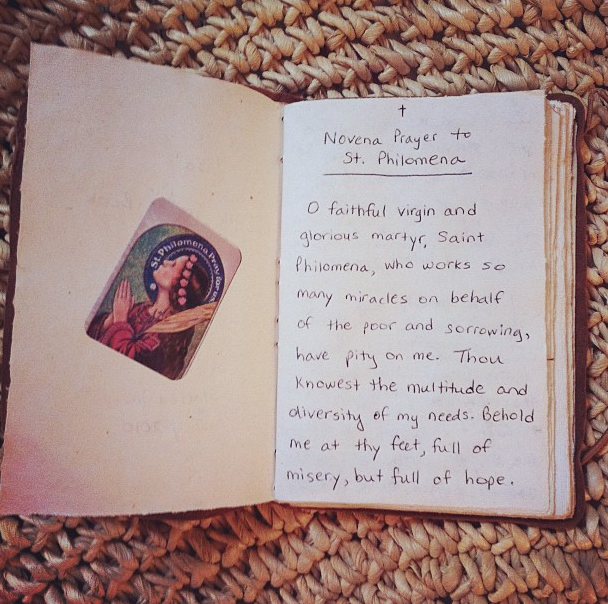 St. Philomena Pray for us
†
Novena Prayer to
St. Philomena
O faithful virgin and
glorious martyr, Saint
Philomena, who works so
many miracles on behalf
of the poor and sorrowing,
have pity on me. Thou
Knowest the multitude and
diversity of my needs. Behold
me at thy feet, full of
misery, but full of hope.